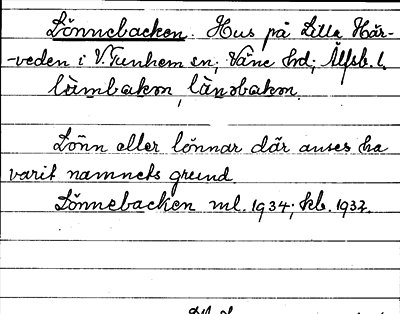 Lönnebacken. Hus på Lilla Här-
-veden i V. Tunhem sn; Väne hd; Älfsb. l.
lämbakɷn, länəbakɷn.
Lönn eller lönnar där anses ha
varit namnets grund.
Lönnebacken ml. 1934; kb. 1932.